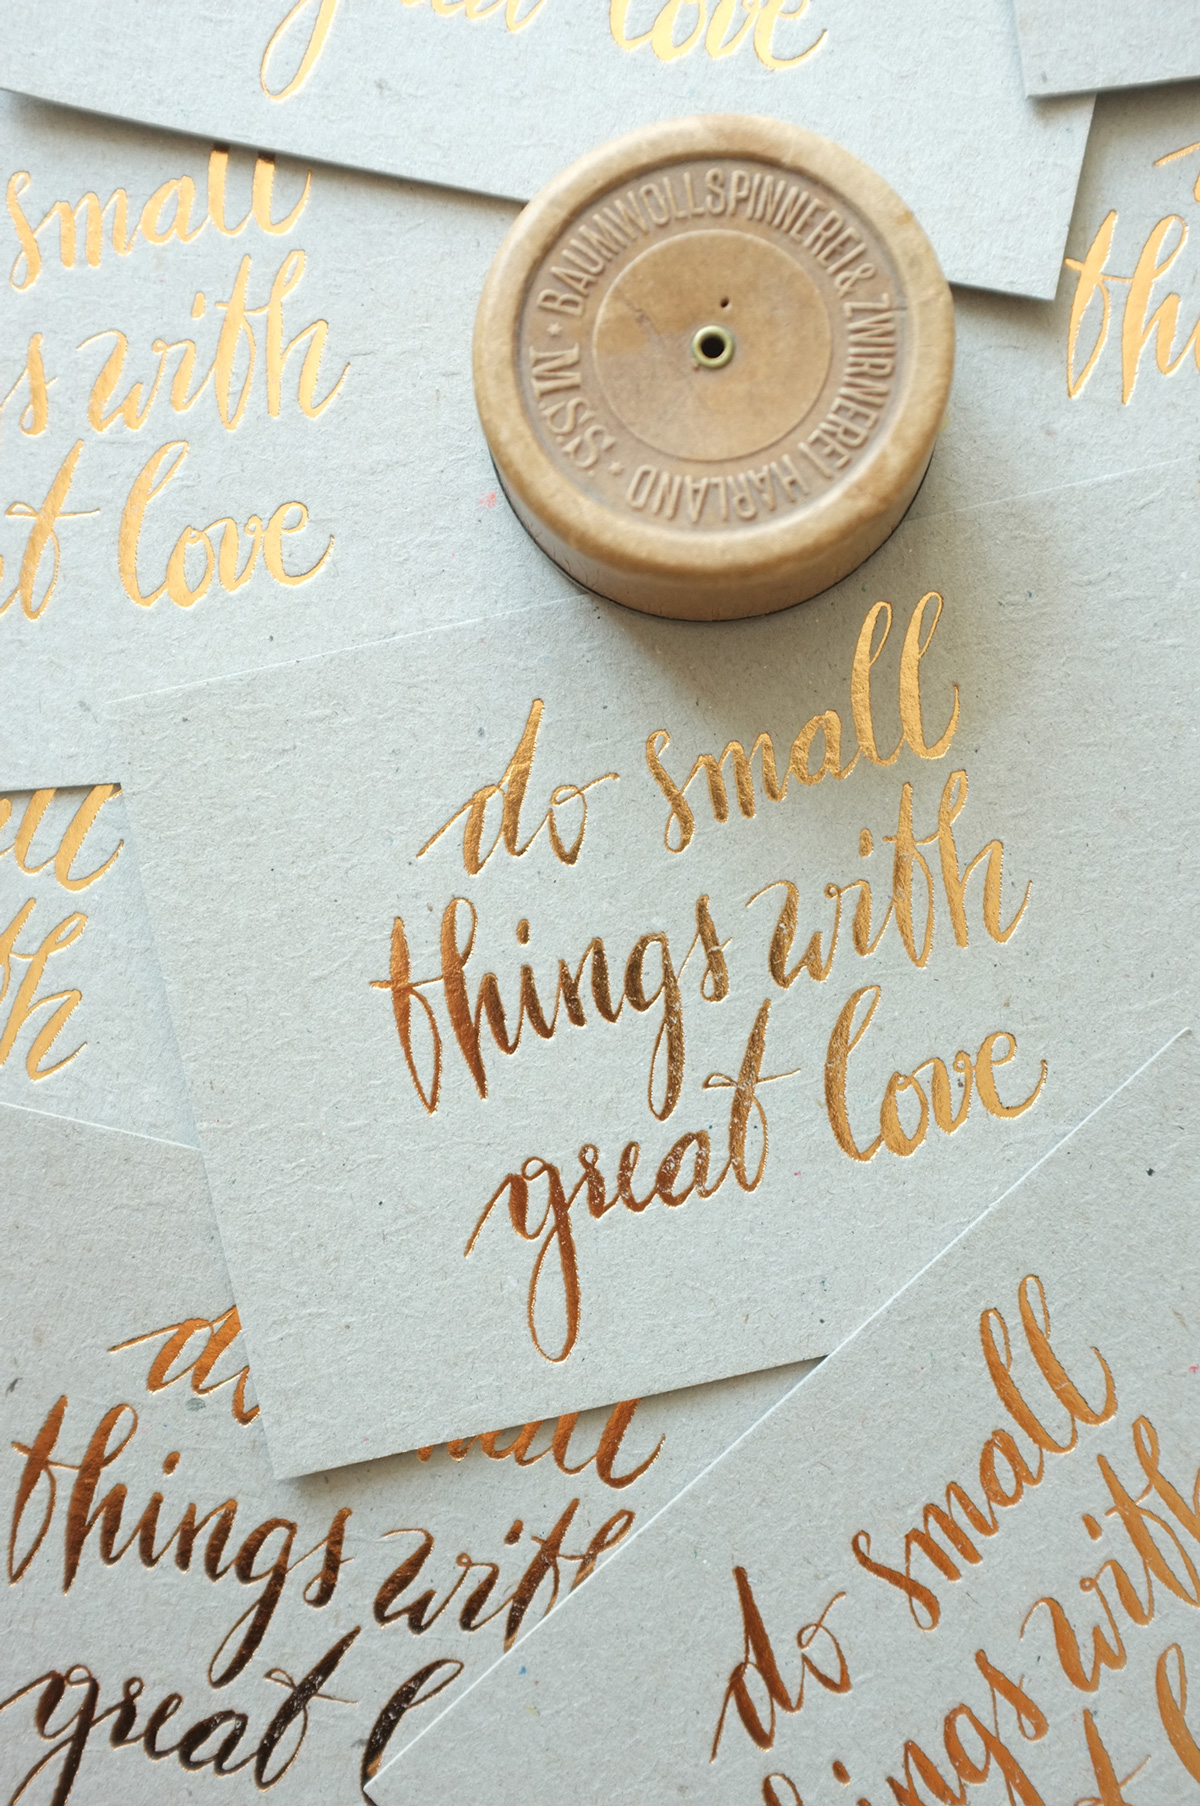 great love
small
s with
t love
th
BAUMWOLLSPINNEREI & ZWIRNEREI HARLAND * MSS *
do small
things with
great love
ell
th
do
mall
things with
great l
do small
things with
t l